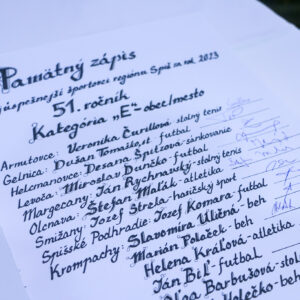 Pamätný zápis
najúspešnejší športovci regiónu Spiš za rok 2023
51. ročník
Kategória „E"-obec/mesto
Armutovce: Veronika Čurillová-stolný tenis
Gelnica: Dušan Tomašo,st. futbal
Helcmanovce: Dešana Špitzová-sánkovanie
Levoča: Miroslav Dunčko-futbal
Margecany: Ján Rychnavský-stolný tenis
Olcnava: Štefan Maľák-atletika
Smižany: Jozef Štrela-hasičský šport
Spišské Podhradie: Jozef Komara-futbal
Krompachy: Slavomíra Uličná-beh
Marián Polaček-beh
Helena Kráľová-atletika
Ján Biľ-futbal
Barbušová-stol
beh